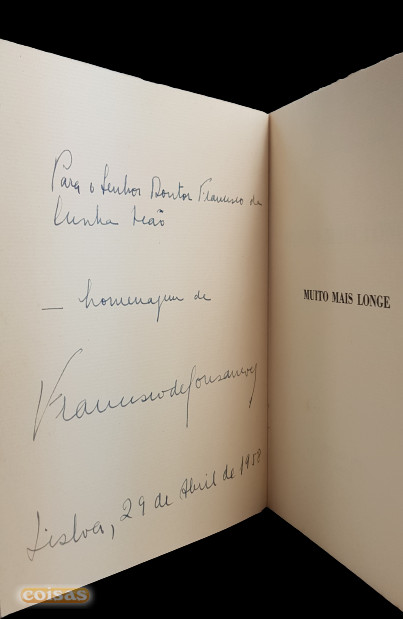 Para o Senhor Doutor Francisco da
Cunha Leão
— homenagem de
Lisboa, 29 de Abril de 195
MUITO MAIS LONGE
coisas